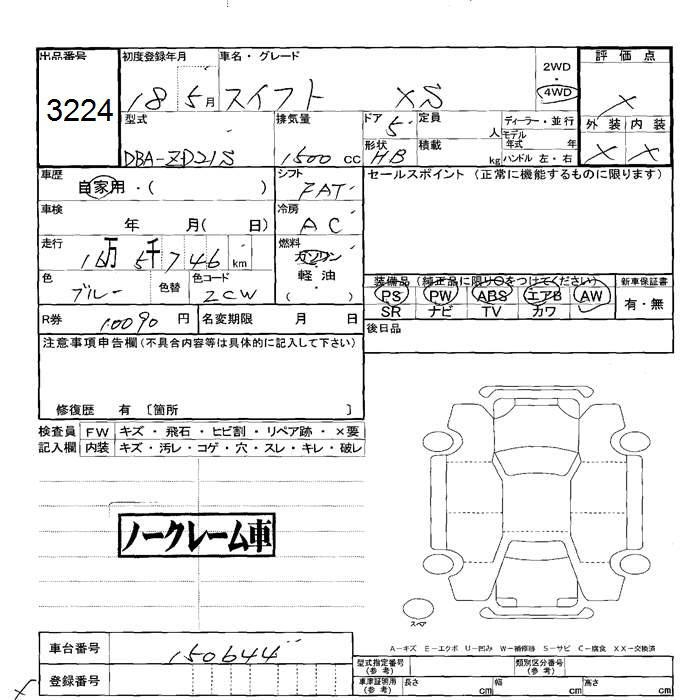 出品番号
3224
初度登録年月
18 5月
車名・グレード
スイフト XS
2WD
・
4WD
評価点
×
外装 内装
× ×
型式
DBA-ZD21S
排気量
1500 cc
ドア 5
定員 人
形状 HB
積載 kg
ディーラー・並行
モデル年式 年
ハンドル 左・右
車歴
自家用・( )
シフト
FAT
セールスポイント (正常に機能するものに限ります)
車検
年 月( 日)
冷房
AC
走行
16万5千746 km
燃料
ガソリン
軽・油
( )
色
ブルー
色替
色コード
ZCW
装備品 (純正品に限り○をつけてください)
PS PW ABS エアB AW
SR ナビ TV カワ
新車保証書
有・無
R券
10090 円
名変期限 月 日
後日品
注意事項申告欄(不具合内容等は具体的に記入して下さい)
修復歴 有 〔箇所 〕
検査員
記入欄
FW キズ・飛石・ヒビ割・リペア跡・×要
内装 キズ・汚レ・コゲ・穴・スレ・キレ・破レ
ノークレーム車
スペア
A-キズ E-エクボ U-凹み W-補修跡 S-サビ C-腐食 XX-交換済
車台番号
150644
登録番号
型式指定番号
(参考)
類別区分番号
(参考)
車庫証明用
(参考)
長さ cm 幅 cm 高さ cm